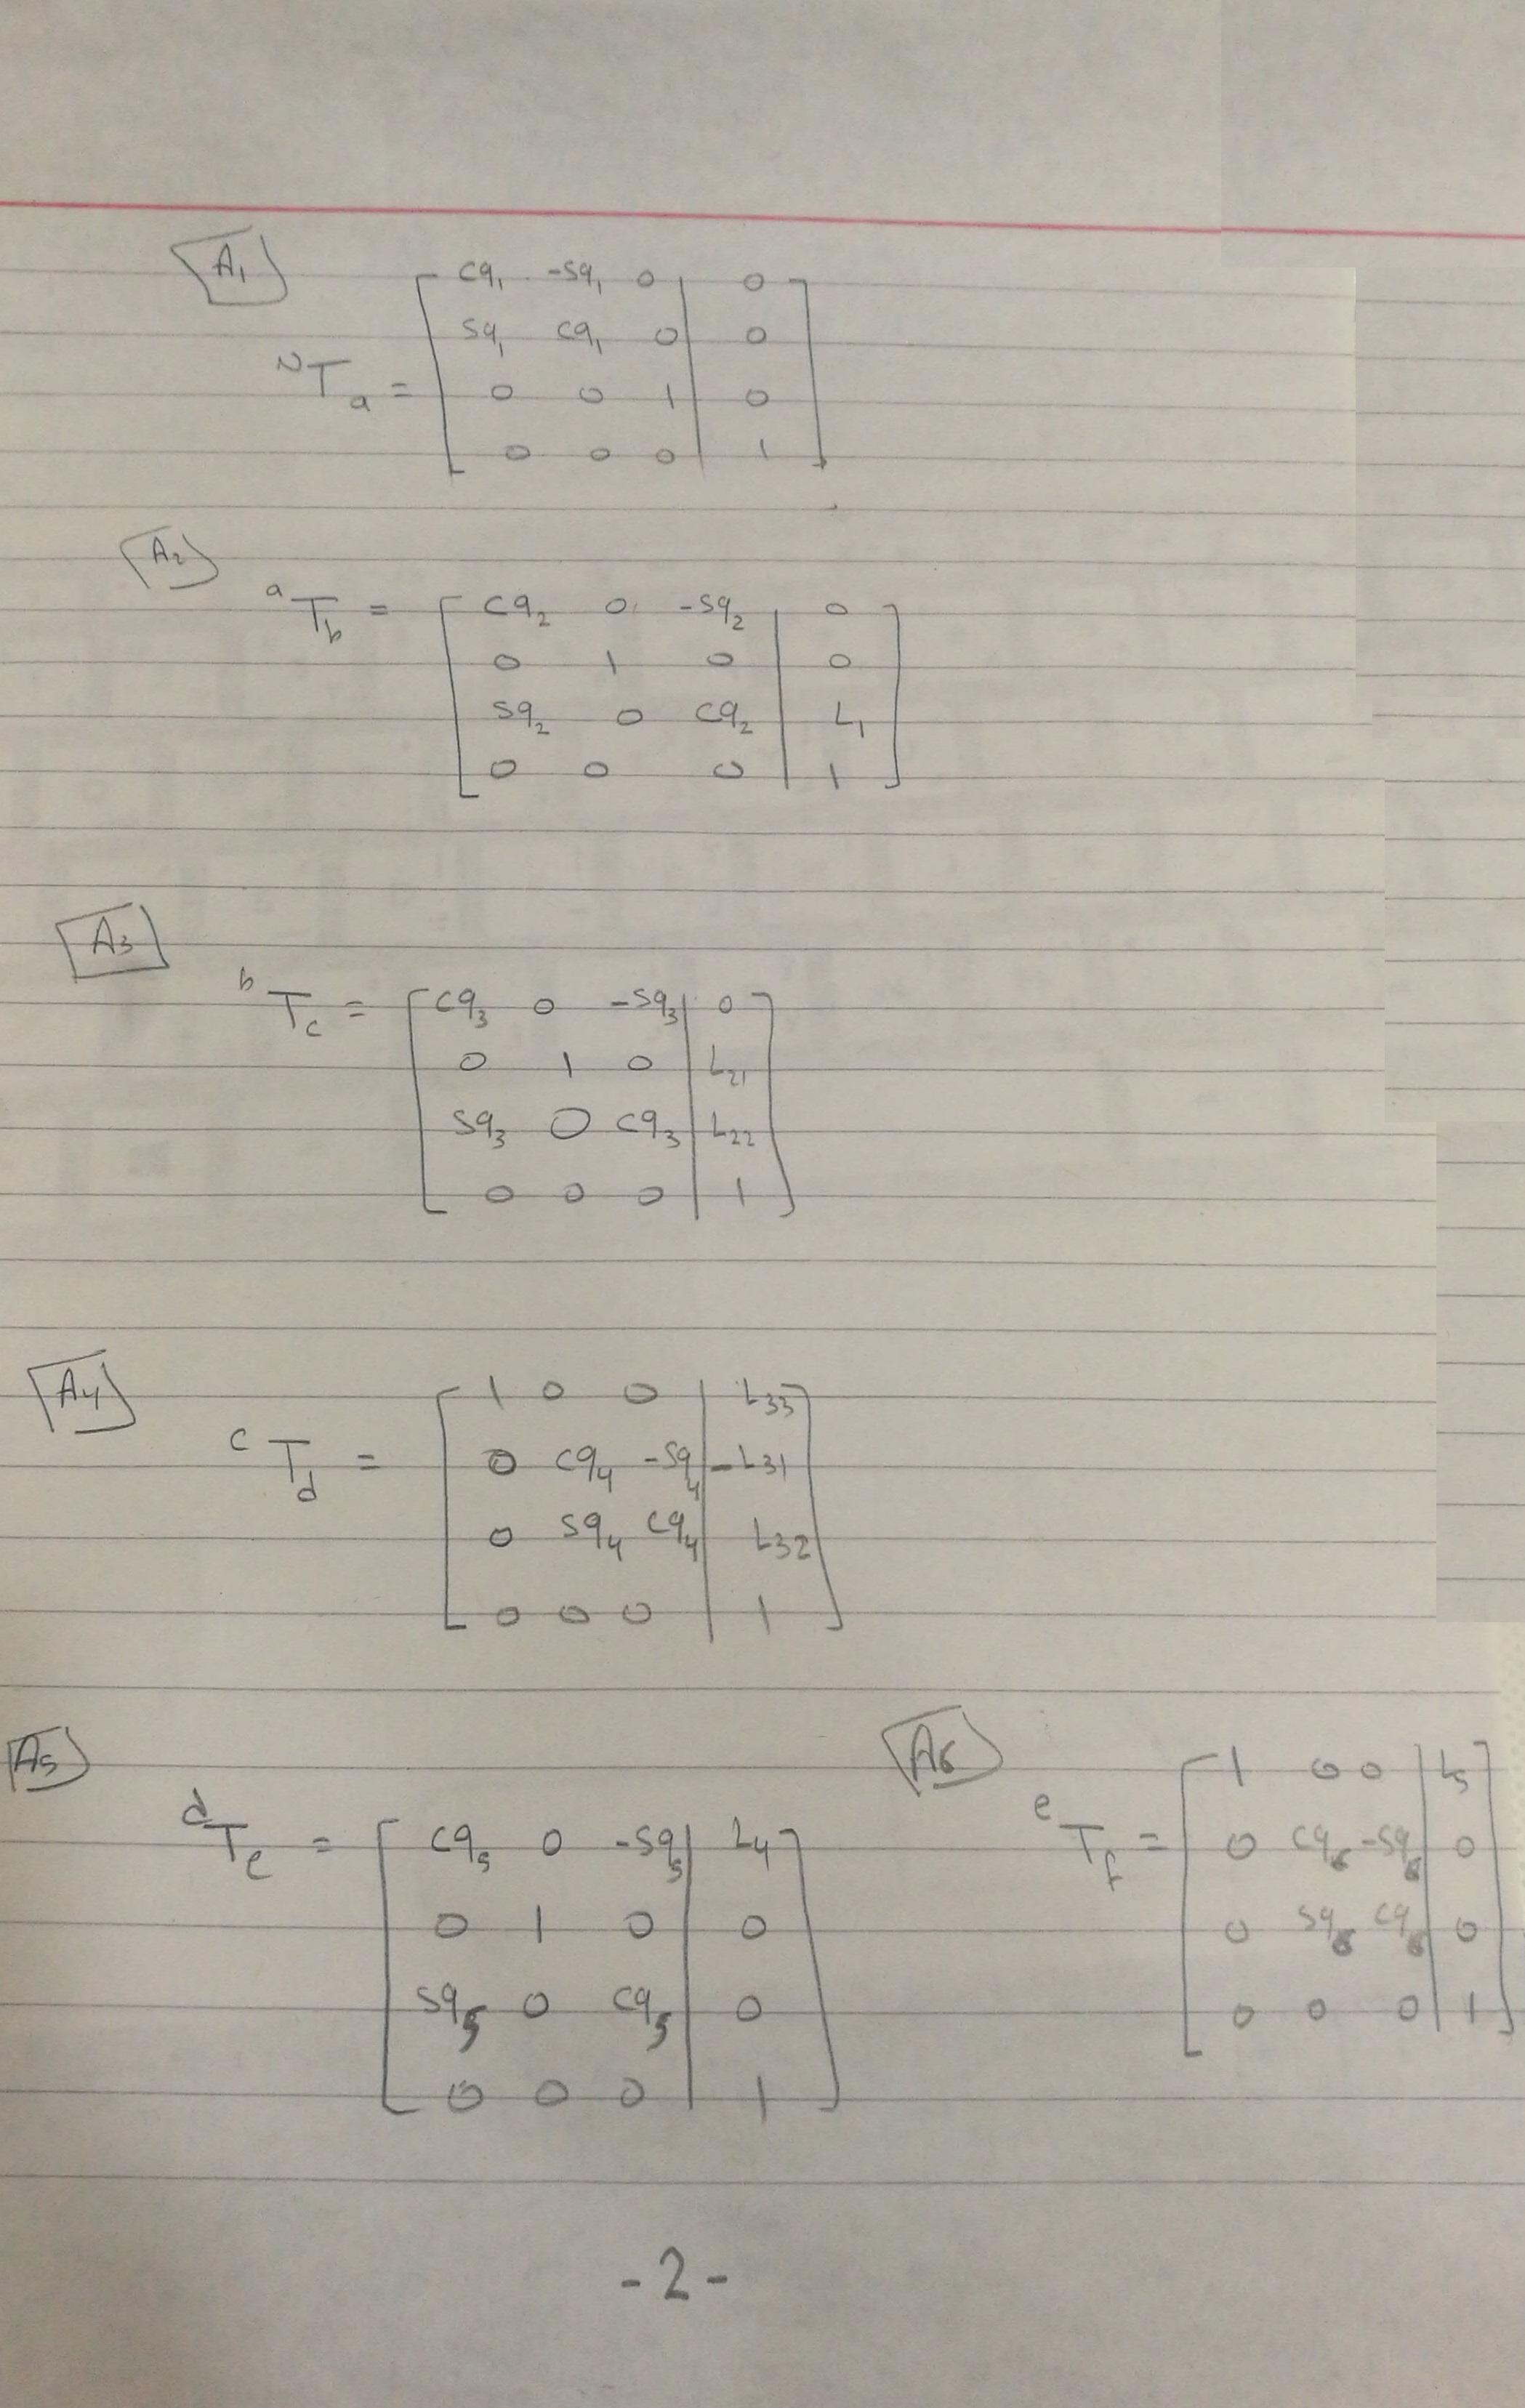 A₁
cq₁ -sq₁ 0 | 0
sq₁ cq₁ 0 | 0
ᴺTₐ =
0 0 1 | 0
0 0 0 | 1
A₂
ᵃT_b =
cq₂ 0 -sq₂ | 0
0 1 0 | 0
sq₂ 0 cq₂ | L₁
0 0 0 | 1
A₃
ᵇT_c =
cq₃ 0 -sq₃ | 0
0 1 0 | L₂₁
sq₃ 0 cq₃ | L₂₂
0 0 0 | 1
A₄
ᶜT_d =
1 0 0 | L₃₃
0 cq₄ -sq₄ | -L₃₁
0 sq₄ cq₄ | L₃₂
0 0 0 | 1
A₅
ᵈT_e =
cq₅ 0 -sq₅ | L₄
0 1 0 | 0
sq₅ 0 cq₅ | 0
0 0 0 | 1
A₆
ᵉT_f =
1 0 0 | L₅
0 cq₆ -sq₆ | 0
0 sq₆ cq₆ | 0
0 0 0 | 1
-2-